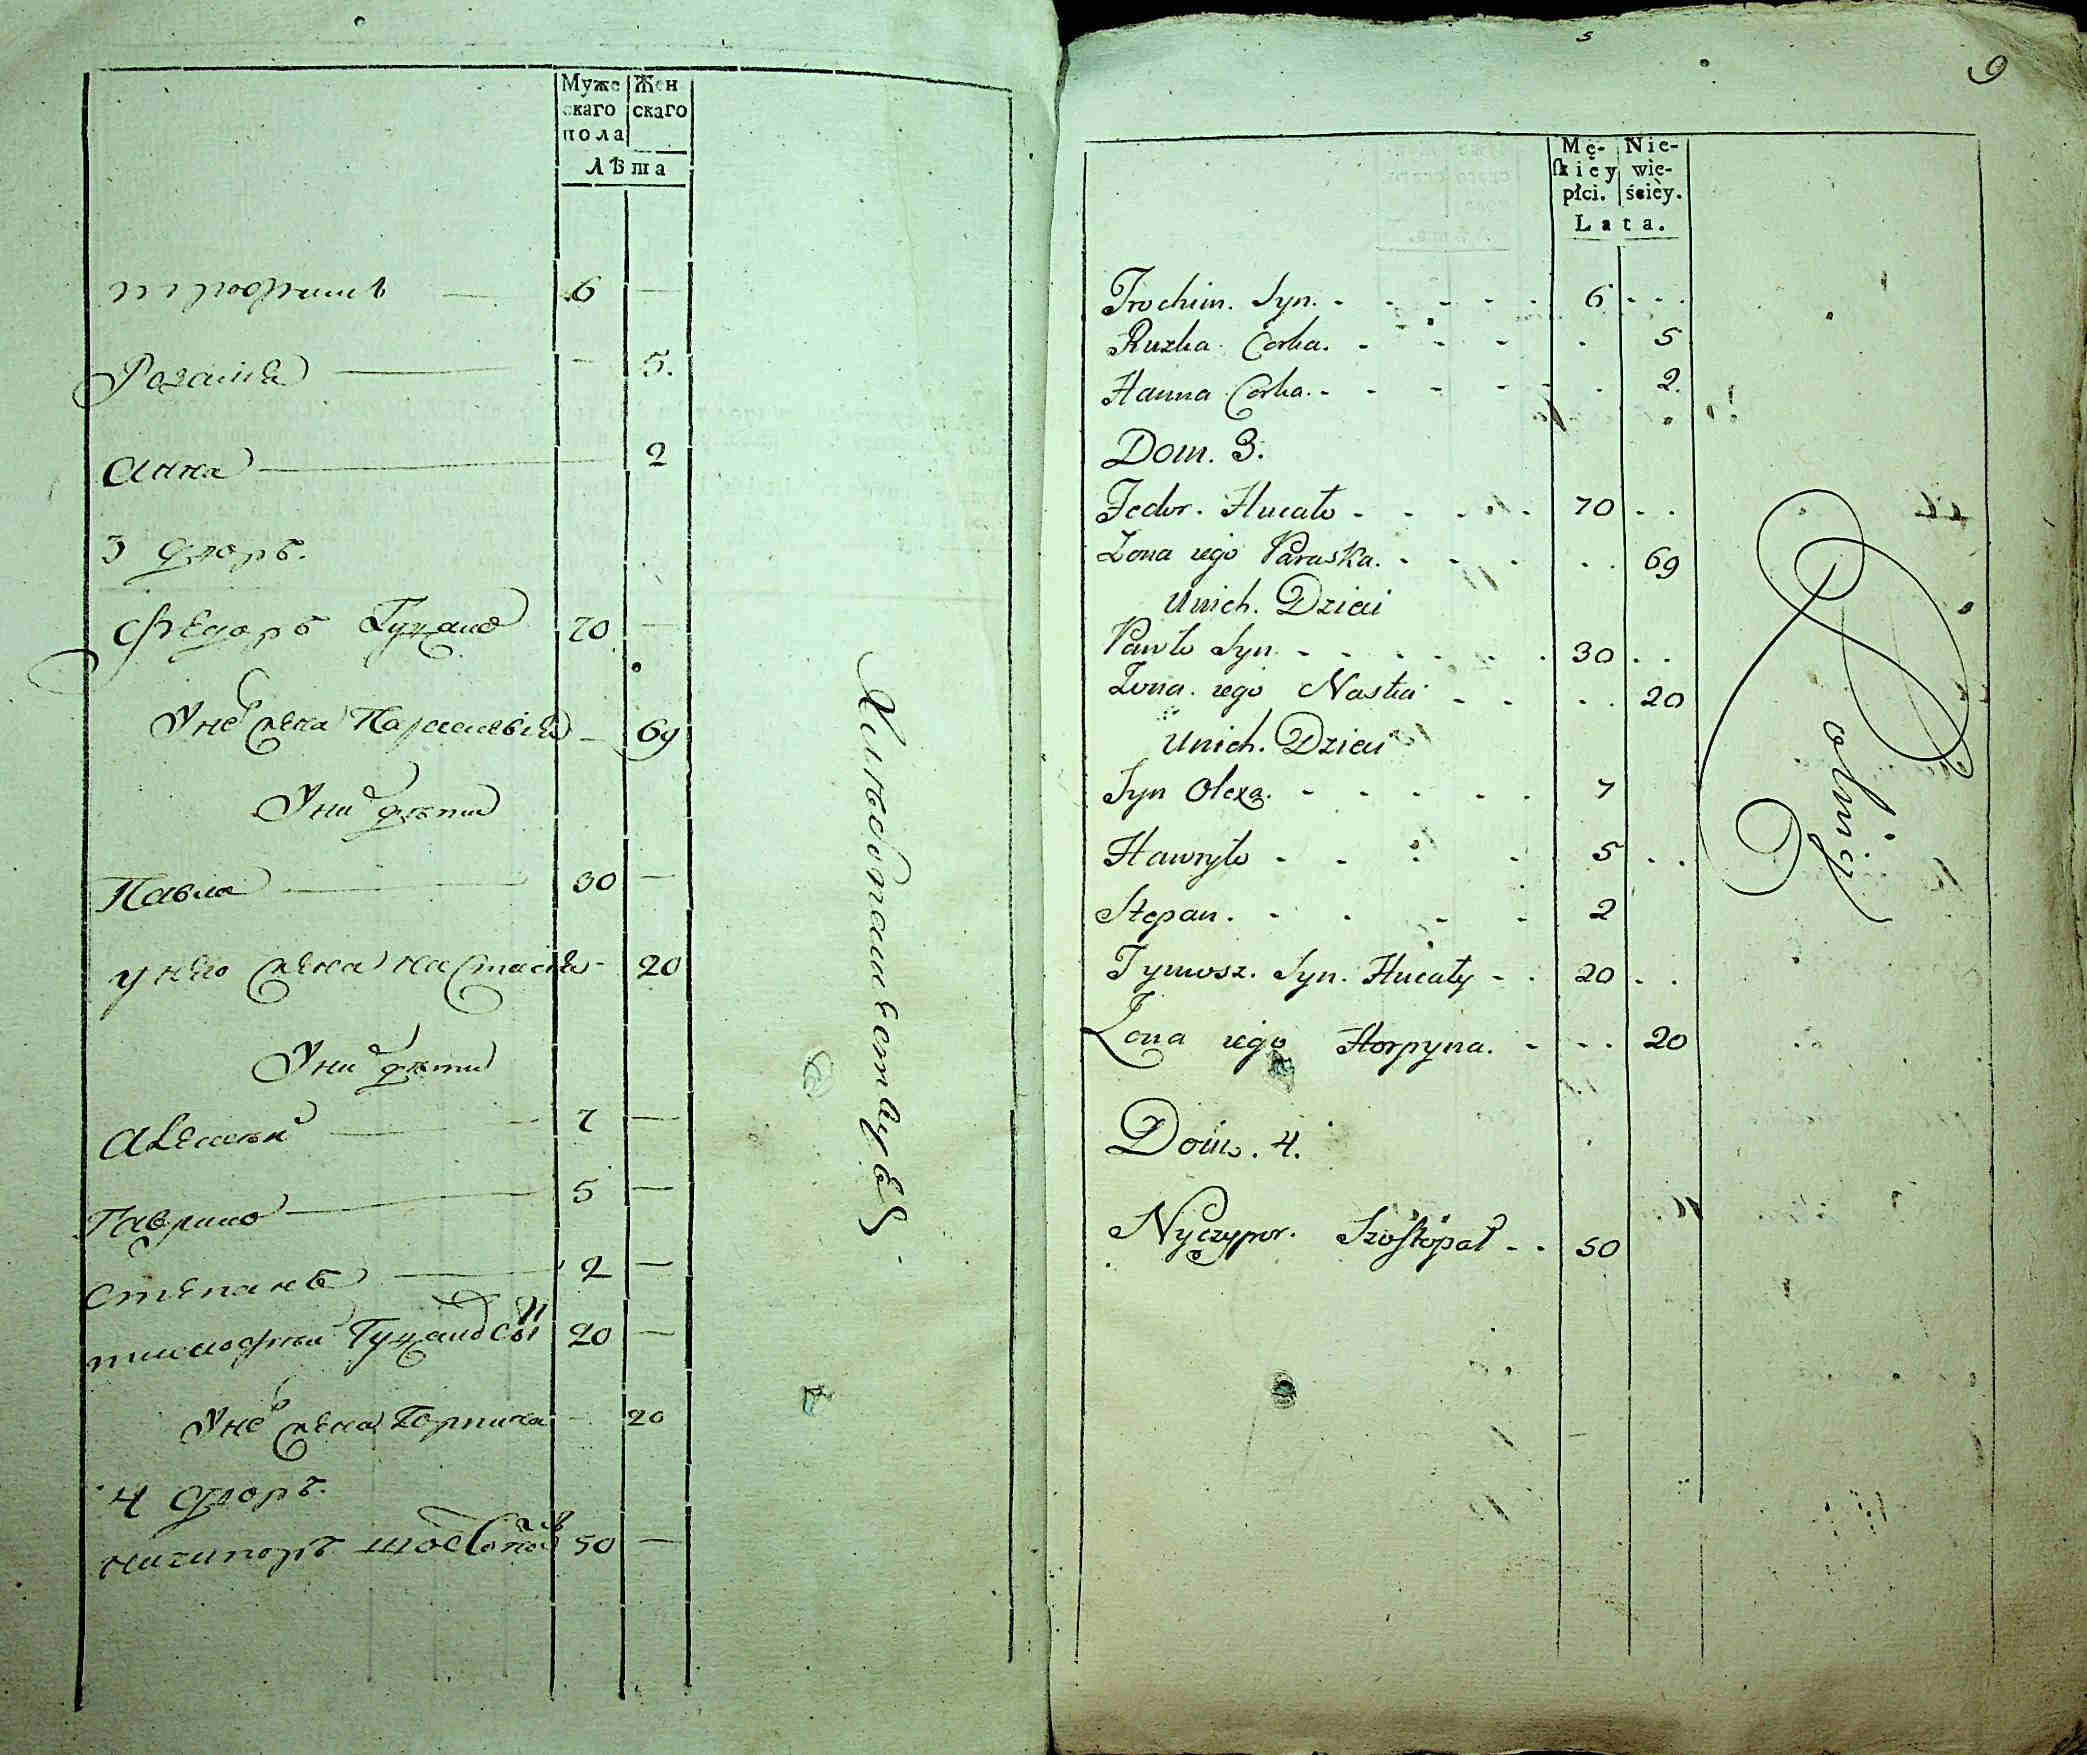 Муже Жен
скаго скаго
пола
Лѣта
трофимъ — 6 —
Розалія — — 5.
Анна — 2
3 дворъ.
Федоръ Гуцало 70 —
У не жена Параскевія — 69
У ни дѣти
Павла — 30 —
у него жена настасия - 20
У ни дѣти
Алексѣй — 7 —
Гаврило — 5 —
Степанъ — 2 —
тимофей Гуцало сы 20 —
У не жена Горпина - 20
4 дворъ.
ничипоръ 50 —
Хлѣбопашествуетъ
9
Mę- Nie-
ſkièy wie-
płci. ścièy.
Lata.
Trochim. Syn. - - - - - 6 - - .
Ruzka Corka. - - - . 5
Hanna Corka. - - - - - . 2.
Dom. 3.
Fedor. Hucało - - - - - 70 - .
Zona iego Paraska. - - - . . 69
Unich. Dzieci
Pawło Syn - - - - - . 30 . .
Zona. iego Nastia - - . . 20
Unich. Dzieci
Syn Olexa. - - - - - 7
Hawryło - - - - 5 . .
Stepan. - - - - 2
Tymosz. Syn. Hucały - . 20 . .
Zona iego Horpyna. - - . 20
Dom. 4.
Nyczypor. Szostopał - . 50
Rolnicy